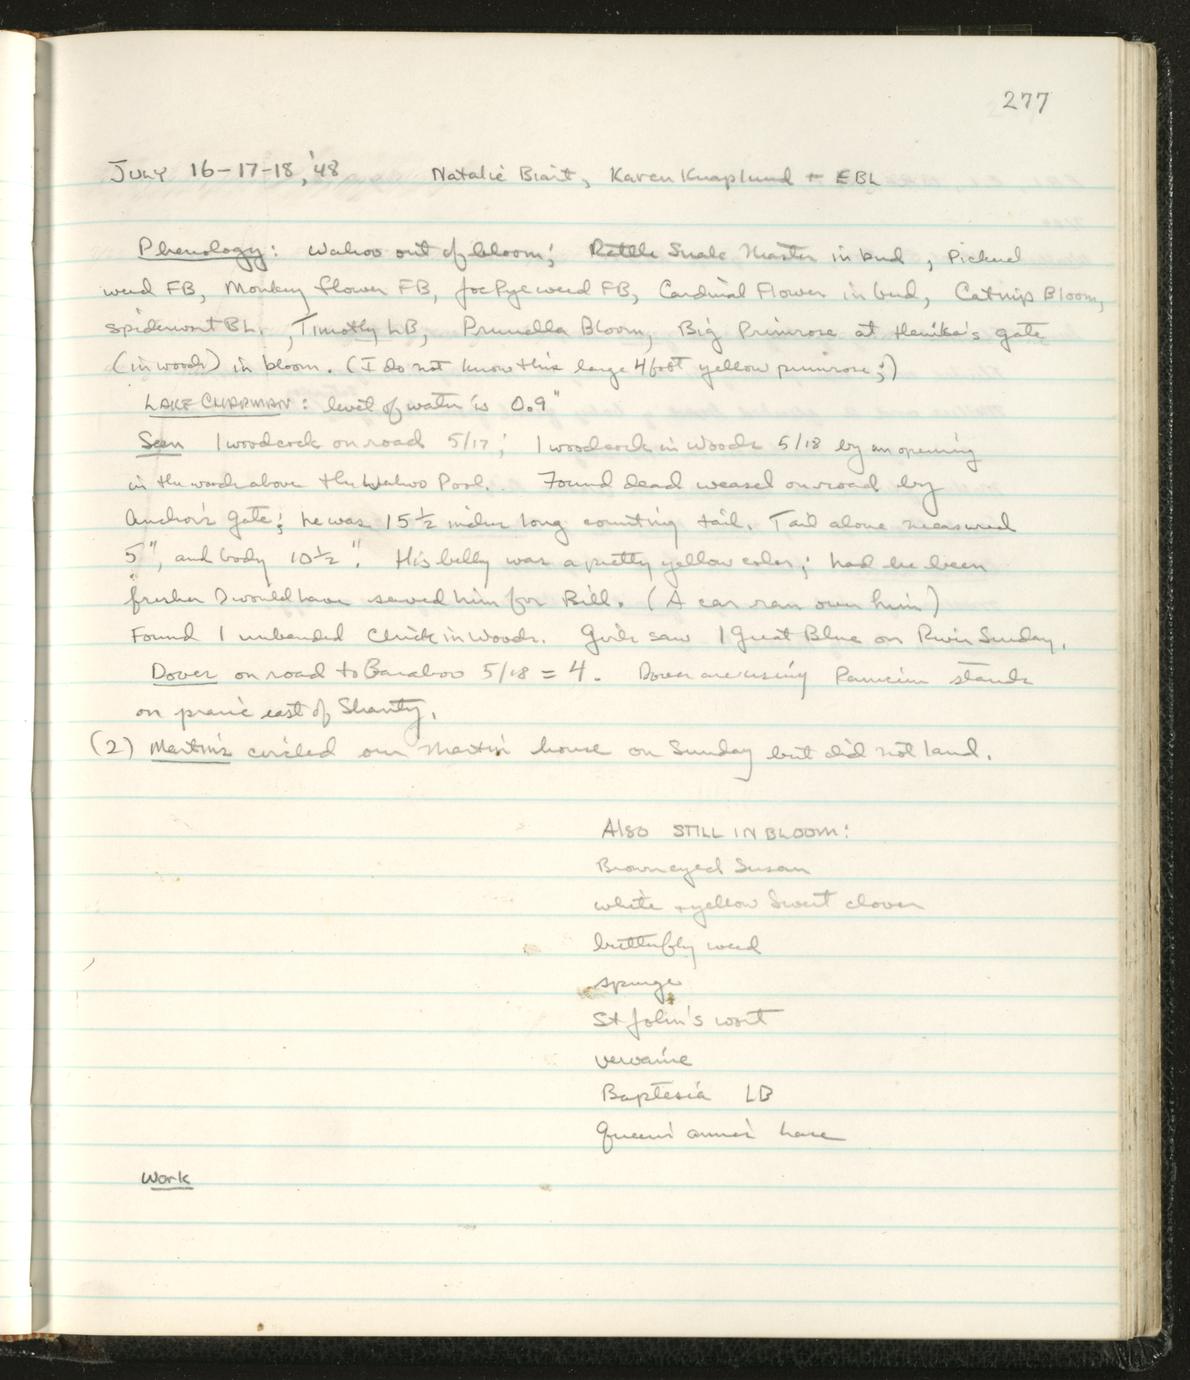 277
JULY 16-17-18, '48 Natalie Biart, Karen Knaplund + EBL
Phenology: Wahoo out of bloom; Rattle Snake Master in bud, Pickerel
weed FB, Monkey flower FB, Joe Pye weed FB, Cardinal Flower in bud, Catnip Bloom,
spiderwort BL., Timothy LB, Prunella Bloom, Big Primrose at Henika's gate
(in woods) in bloom. (I do not know this large 4 foot yellow primrose;)
LAKE CHAPMAN: level of water is 0.9"
Seen 1 woodcock on road 5/17; 1 woodcock in woods 5/18 by an opening
in the woods above the Wahoo Pool. Found dead weasel on road by
Anchor's Gate; he was 15½ inches long counting tail. Tail alone measured
5", and body 10½". His belly was a pretty yellow color; had he been
fresher I would have saved him for Bill. (A car ran over him)
Found 1 unbanded Chick in Woods. Girls saw 1 Great Blue on River Sunday.
Doves on road to Baraboo 5/18 = 4. Doves are using Panicum stands
on prairie east of Shanty.
(2) Martins circled our Martin house on Sunday but did not land.
Also STILL IN BLOOM:
Brown eyed Susan
white + yellow Sweet clover
butterfly weed
spurge
St John's wort
vervaine
Baptesia LB
Queen annes lace
Work